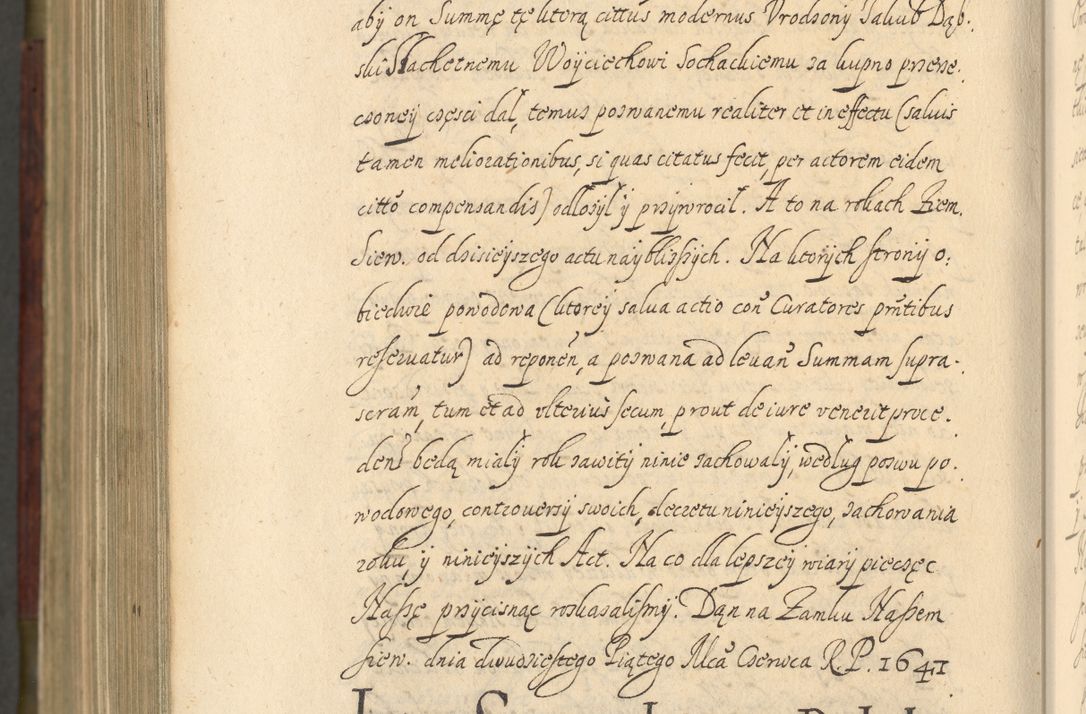 aby on Summę tę ktorą cittus modernus Vrodzony Jakub Dąb.
ski Slachetnemu Woyciechowi Sochackiemu za kupno przerze.
czoney częsci dal, temuz pozwanemu realiter et in effectu (saluis
tamen meliorationibus, si quas citatus fecit, per actorem eidem
citto compensandis) odlożyl y przywrocil. A to na rokach Ziem.
Siew. od dzisieyszego actu nayblizszych. Na ktorych strony o:
biedwie powodowa (ktorey salua actio con Curatores pntibus
reseruatur) ad reponen, a pozwana ad leuan Summam supra.
scram, tum et ad vlterius secum, prout de iure venerit proce.
den będą mialy rok zawity ninie zachowaly, według pozwu po.
wodowego, controuersy swoich, decretu ninieyszego, zachowania
roku, y ninieyszych Act. Na co dla lepszey wiary pieczęc
Naszę przycisnąc roskazalismy. Dąn na Zamku Naszem
siew. dnia dwudziestego Piątego Mca Czerwca R.P. 1641